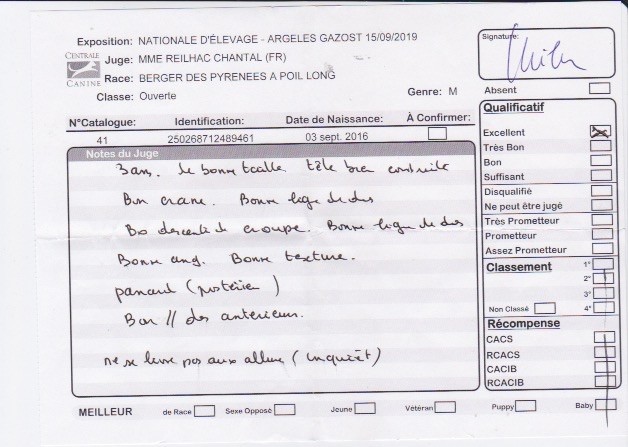 Exposition: NATIONALE D'ÉLEVAGE - ARGELES GAZOST 15/09/2019
CENTRALE CANINE
Juge: MME REILHAC CHANTAL (FR)
Race: BERGER DES PYRENEES A POIL LONG
Classe: Ouverte Genre: M
N°Catalogue: Identification: Date de Naissance: À Confirmer:
41 250268712489461 03 sept. 2016
Notes du Juge
3 ans. de bonne taille tête bien construite
Bon crane. Bonne ligne de dos
descente de croupe. Bonne ligne de dos
Bonne ang. Bonne texture.
panard (postérieur)
Bon // des antérieurs.
ne se livre pas aux allures (inquièt)
MEILLEUR de Race Sexe Opposé Jeune Vétéran Puppy Baby
Signature:
Absent
Qualificatif
Excellent
Très Bon
Bon
Suffisant
Disqualifié
Ne peut être jugé
Très Prometteur
Prometteur
Assez Prometteur
Classement 1°
2°
3°
Non Classé 4°
Récompense
CACS
RCACS
CACIB
RCACIB